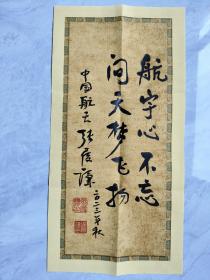 航宇心不忘
问天梦飞扬
中国航天 张履谦
二〇二三年秋